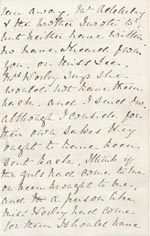 run away. Mr Adderley
& her brother I wrote to.
but neither have written
no have I heard from
you, or Miss Lee.
Mrs Worley says she
would not have them
back, and I send you
although I conside for
their own Sakes they
ought to have been
sent back. I think if
the girls had come to me
or been brought to me,
and to a person like
Miss Worley had come
for them I should have